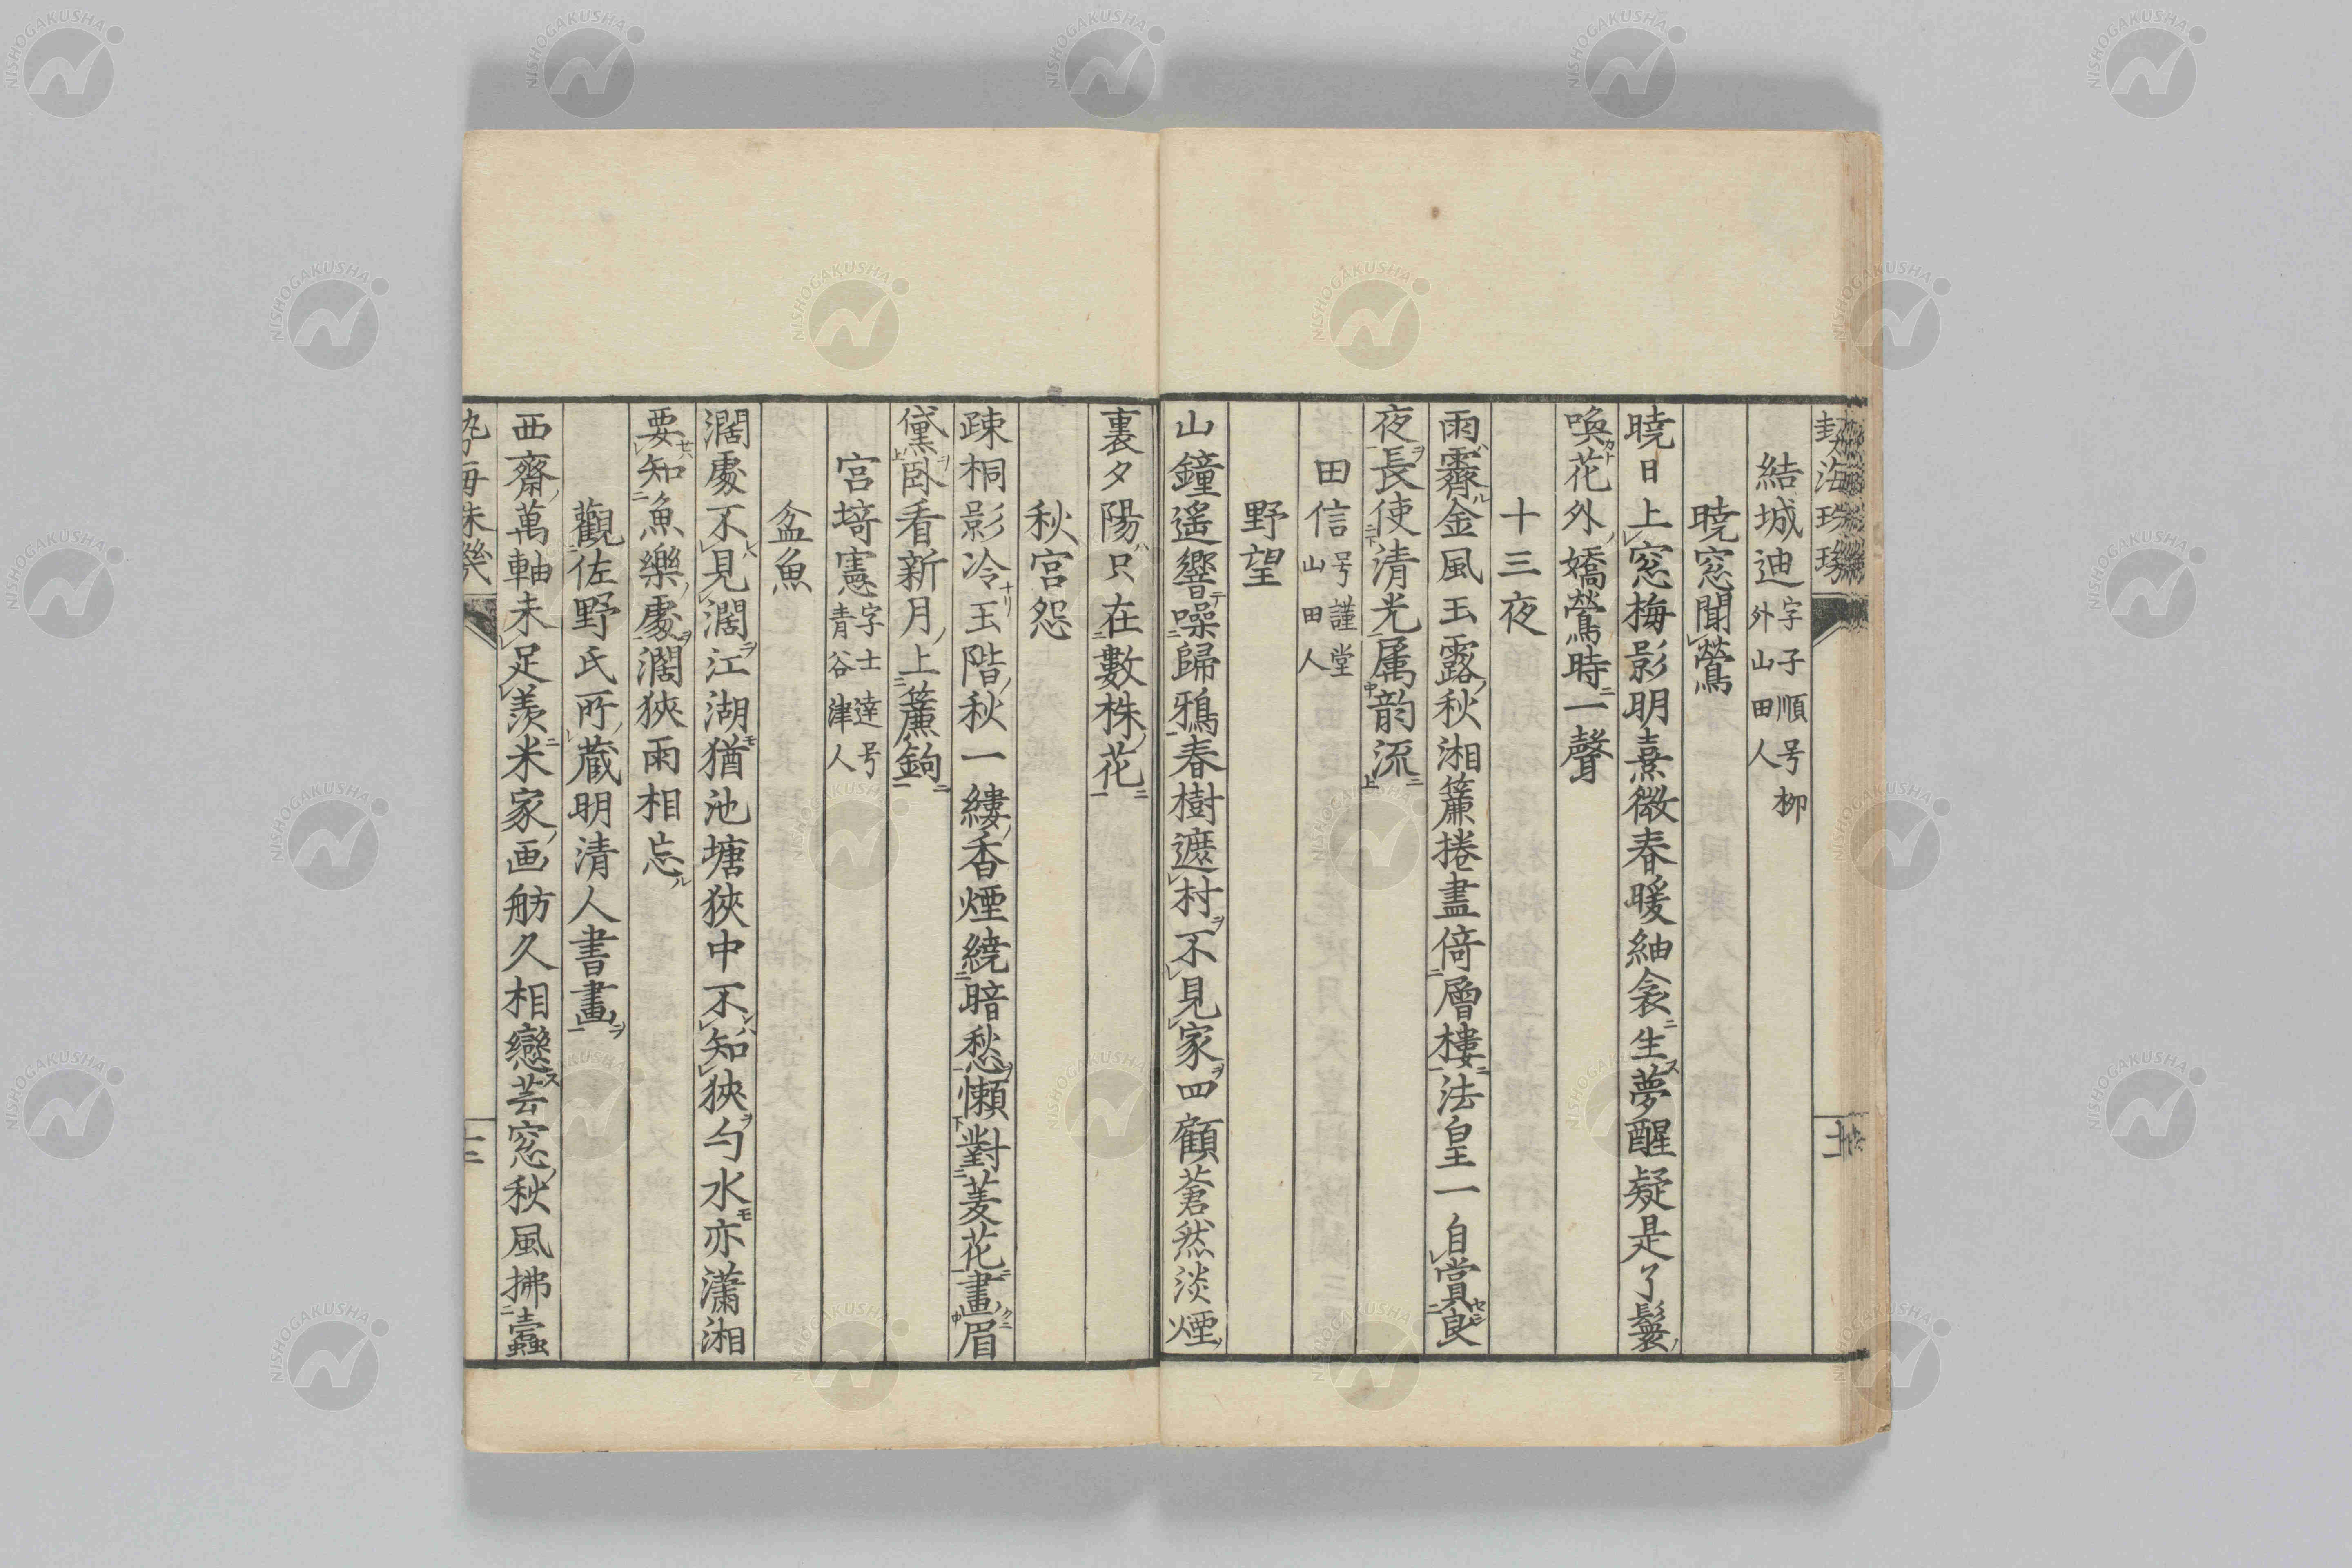 結城迪 字子順号柳外山田人
暁窓聞鶯
暁日上窓梅影明熹微春暖紬衾生夢醒疑是了鬟
喚花外嬌鶯時一聲
十三夜
雨霽金風玉露秋湘簾捲盡倚層樓法皇一自賞良
夜長使清光属韵流
田信 号謹堂山田人
野望
山鐘遥響噪歸鴉春樹遮村不見家四顧蒼然淡煙
裏夕陽只在數株花
秋宮怨
疎桐影冷玉階秋一縷香煙繞暗愁懶對菱花畫眉
黛臥看新月上簾鉤
宮埼憲 字士達号青谷津人
盆魚
濶處不見濶江湖猶池塘狹中不知狹勺水亦瀟湘
要知魚樂處濶狹兩相忘
觀佐野氏所蔵明清人書畫
西齋萬軸未足羨米家画舫久相戀芸窓秋風拂蠹
NISHOGAKUSHA